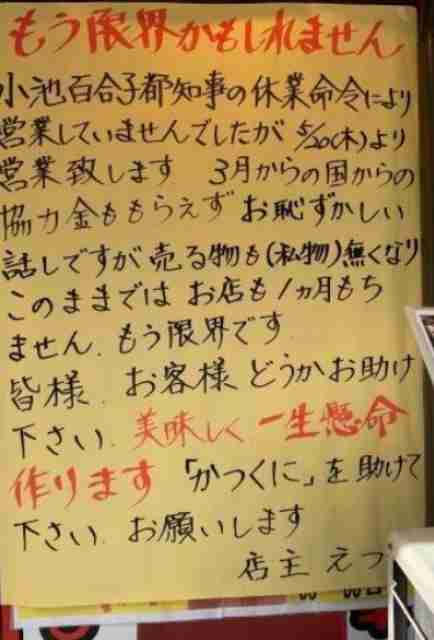 もう限界かもしれません
小池百合子都知事の休業命令により
営業していませんでしたが 5/20(木)より
営業致します 3月からの国からの
協力金ももらえず お恥ずかしい
話しですが 売る物も(私物)無くなり
このままでは お店も1ヵ月もち
ません. もう限界です
皆様. お客様 どうかお助け
下さい. 美味しく 一生懸命
作ります 「かつくに」を助けて
下さい. お願いします
店主 えつ